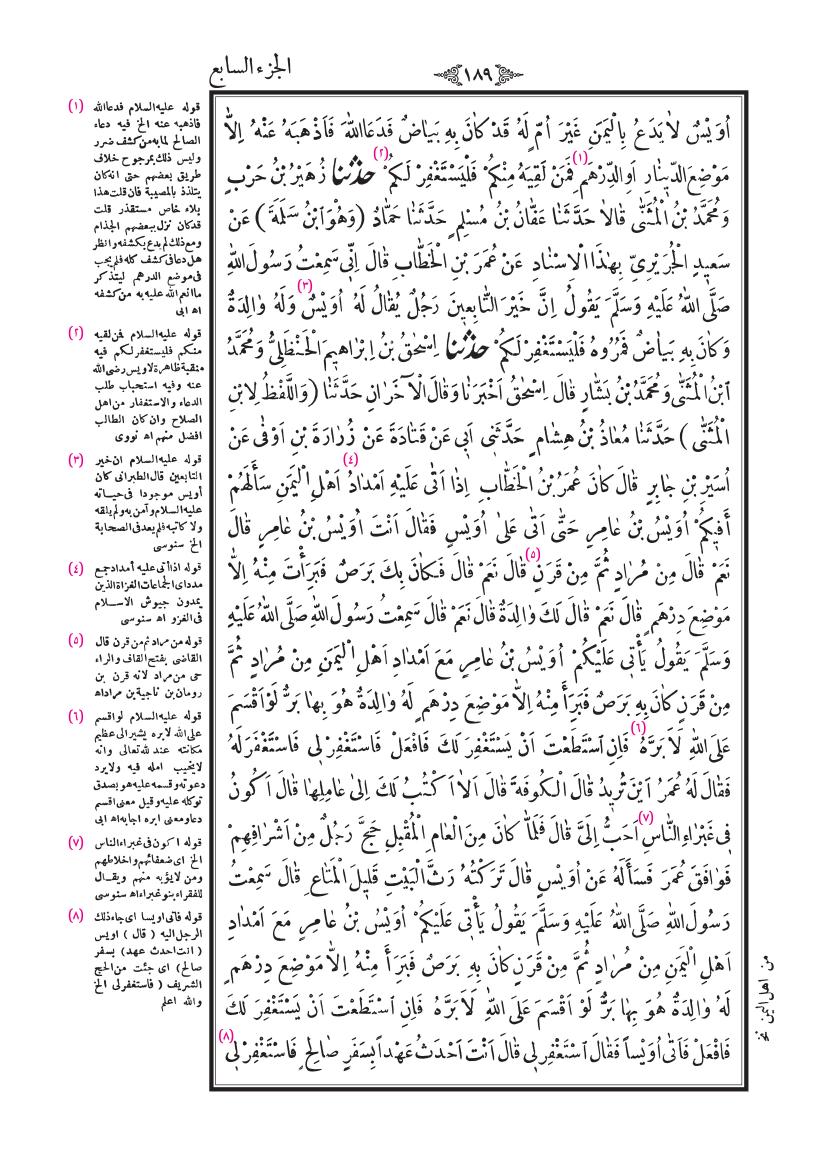 الجزء السابع
١٨٩
اُوَيْسٌ لَا يَدَعُ بِالْيَمَنِ غَيْرَ اُمٍّ لَهُ قَدْ كَانَ بِهِ بَيَاضٌ فَدَعَا اللّٰهَ فَاَذْهَبَهُ عَنْهُ اِلَّا
مَوْضِعَ الدّٖينَارِ اَوِ الدِّرْهَمِ (١) فَمَنْ لَقِيَهُ مِنْكُمْ فَلْيَسْتَغْفِرْ لَكُمْ (٢) حَدَّثَنَا زُهَيْرُ بْنُ حَرْبٍ
وَمُحَمَّدُ بْنُ الْمُثَنّٰى قَالَا حَدَّثَنَا عَفَّانُ بْنُ مُسْلِمٍ حَدَّثَنَا حَمَّادٌ (وَهُوَ ابْنُ سَلَمَةَ) عَنْ
سَعٖيدٍ الْجُرَيْرِيِّ بِهٰذَا الْاِسْنَادِ عَنْ عُمَرَ بْنِ الْخَطَّابِ قَالَ اِنّٖى سَمِعْتُ رَسُولَ اللّٰهِ
صَلَّى اللّٰهُ عَلَيْهِ وَسَلَّمَ يَقُولُ اِنَّ خَيْرَ التَّابِعٖينَ رَجُلٌ يُقَالُ لَهُ اُوَيْسٌ (٣) وَلَهُ وَالِدَةٌ
وَكَانَ بِهِ بَيَاضٌ فَمُرُوهُ فَلْيَسْتَغْفِرْ لَكُمْ حَدَّثَنَا اِسْحٰقُ بْنُ اِبْرَاهٖيمَ الْحَنْظَلِيُّ وَمُحَمَّدُ
ابْنُ الْمُثَنّٰى وَمُحَمَّدُ بْنُ بَشَّارٍ قَالَ اِسْحٰقُ اَخْبَرَنَا وَقَالَ الْآخَرَانِ حَدَّثَنَا (وَاللَّفْظُ لِابْنِ
الْمُثَنّٰى) حَدَّثَنَا مُعَاذُ بْنُ هِشَامٍ حَدَّثَنٖى اَبٖى عَنْ قَتَادَةَ عَنْ زُرَارَةَ بْنِ اَوْفٰى عَنْ
اُسَيْرِ بْنِ جَابِرٍ قَالَ كَانَ عُمَرُ بْنُ الْخَطَّابِ اِذَا اَتٰى عَلَيْهِ اَمْدَادُ (٤) اَهْلِ الْيَمَنِ سَأَلَهُمْ
أَفٖيكُمْ اُوَيْسُ بْنُ عَامِرٍ حَتّٰى اَتٰى عَلٰى اُوَيْسٍ فَقَالَ اَنْتَ اُوَيْسُ بْنُ عَامِرٍ قَالَ
نَعَمْ قَالَ مِنْ مُرَادٍ ثُمَّ مِنْ قَرَنٍ (٥) قَالَ نَعَمْ قَالَ فَكَانَ بِكَ بَرَصٌ فَبَرَأْتَ مِنْهُ اِلَّا
مَوْضِعَ دِرْهَمٍ قَالَ نَعَمْ قَالَ لَكَ وَالِدَةٌ قَالَ نَعَمْ قَالَ سَمِعْتُ رَسُولَ اللّٰهِ صَلَّى اللّٰهُ عَلَيْهِ
وَسَلَّمَ يَقُولُ يَأْتٖى عَلَيْكُمْ اُوَيْسُ بْنُ عَامِرٍ مَعَ اَمْدَادِ اَهْلِ الْيَمَنِ مِنْ مُرَادٍ ثُمَّ
مِنْ قَرَنٍ كَانَ بِهِ بَرَصٌ فَبَرَأَ مِنْهُ اِلَّا مَوْضِعَ دِرْهَمٍ لَهُ وَالِدَةٌ هُوَ بِهَا بَرٌّ لَوْ اَقْسَمَ
عَلَى اللّٰهِ لَاَبَرَّهُ (٦) فَاِنِ اسْتَطَعْتَ اَنْ يَسْتَغْفِرَ لَكَ فَافْعَلْ فَاسْتَغْفِرْ لٖى فَاسْتَغْفَرَ لَهُ
فَقَالَ لَهُ عُمَرُ اَيْنَ تُرٖيدُ قَالَ الْكُوفَةَ قَالَ اَلَا اَكْتُبُ لَكَ اِلٰى عَامِلِهَا قَالَ اَكُونُ
فٖى غَبْرَاءِ النَّاسِ (٧) اَحَبُّ اِلَيَّ قَالَ فَلَمَّا كَانَ مِنَ الْعَامِ الْمُقْبِلِ حَجَّ رَجُلٌ مِنْ اَشْرَافِهِمْ
فَوَافَقَ عُمَرَ فَسَأَلَهُ عَنْ اُوَيْسٍ قَالَ تَرَكْتُهُ رَثَّ الْبَيْتِ قَلٖيلَ الْمَتَاعِ قَالَ سَمِعْتُ
رَسُولَ اللّٰهِ صَلَّى اللّٰهُ عَلَيْهِ وَسَلَّمَ يَقُولُ يَأْتٖى عَلَيْكُمْ اُوَيْسُ بْنُ عَامِرٍ مَعَ اَمْدَادِ
اَهْلِ الْيَمَنِ مِنْ مُرَادٍ ثُمَّ مِنْ قَرَنٍ كَانَ بِهِ بَرَصٌ فَبَرَأَ مِنْهُ اِلَّا مَوْضِعَ دِرْهَمٍ
لَهُ وَالِدَةٌ هُوَ بِهَا بَرٌّ لَوْ اَقْسَمَ عَلَى اللّٰهِ لَاَبَرَّهُ فَاِنِ اسْتَطَعْتَ اَنْ يَسْتَغْفِرَ لَكَ
فَافْعَلْ فَاَتٰى اُوَيْساً فَقَالَ اسْتَغْفِرْ لٖى قَالَ اَنْتَ اَحْدَثُ عَهْداً بِسَفَرٍ صَالِحٍ فَاسْتَغْفِرْ لٖى (٨)
من اهل اليمن نخ
(١) قوله عليه السلام فدعا الله
فاذهبه عنه الخ فيه دعاء
الصالح لما به من كشف ضرر
وليس ذلك بمرجوح خلاف
طريق بعضهم حتى انه كان
يتلذذ بالمصيبة فان قلت هذا
بلاء خاص مستقذر قلت
قد كان نزل ببعضهم الجذام
ومع ذلك لم يدع بكشفه وانظر
هل دعا فى كشف كله فلم يجب
فى موضع الدرهم ليتذكر
ما انعم الله عليه به من كشفه
اه ابى
(٢) قوله عليه السلام فمن لقيه
منكم فليستغفر لكم فيه
منقبة ظاهرة لاويس رضى الله
عنه وفيه استحباب طلب
الدعاء والاستغفار من اهل
الصلاح وان كان الطالب
افضل منهم اه نووى
(٣) قوله عليه السلام ان خير
التابعين قال الطبرانى كان
أويس موجودا فى حياته
عليه السلام وآمن به ولم يلقه
ولا كاتبه فلم يعد فى الصحابة
الخ سنوسى
(٤) قوله اذا أتى عليه أمداد جمع
مدد اى الجماعات الغزاة الذين
يمدون جيوش الاسلام
فى الغزو اه سنوسى
(٥) قوله من مراد ثم من قرن قال
القاضى بفتح القاف والراء
حى من مراد لانه قرن بن
رومان بن ناجية بن مراد اه
(٦) قوله عليه السلام لو اقسم
على الله لابره يشير الى عظيم
مكانته عند الله تعالى وانه
لايخيب امله فيه ولا يرد
دعوته وقسمه عليه هو بصدق
توكله عليه وقيل معنى اقسم
دعا ومعنى ابره اجابه اه ابى
(٧) قوله اكون فى غبراء الناس
الخ اى ضعفائهم واخلاطهم
ومن لا يؤبه منهم ويقال
للفقراء بنو غبراء اه سنوسى
(٨) قوله فاتى اويسا اى جاء ذلك
الرجل اليه (قال) اويس
(انت احدث عهد) بسفر
صالح) اى جئت من الحج
الشريف (فاستغفر لى الخ
والله اعلم